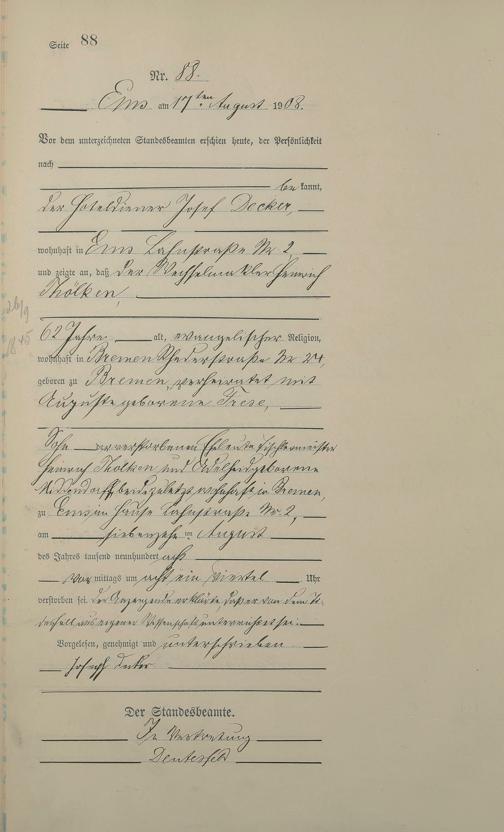 Seite 88
Nr. 88.
Ems am 17ten August 1908.
Vor dem unterzeichneten Standesbeamten erschien heute, der Persönlichkeit
nach
be kannt,
der Hoteldiener Josef Decker,
wohnhaft in Ems Lahnstraße Nr 2,
und zeigte an, daß der Wechselmakler Henrich
Thölken,
62 Jahre alt, evangelischer Religion,
wohnhaft in Bremen Rhederstraße Nr
geboren zu Bremen, verheiratet mit
Auguste geborene Frese,
Sohn der verstorbenen Eheleute Tischlermeister
Henrich Thölken und Adelheid geborene
beide zuletzt wohnhaft in Bremen,
zu Ems im Hause Lahnstraße Nr. 2,
am siebenzehn ten August
des Jahres tausend neunhundert acht
vor mittags um acht ein viertel Uhr
verstorben sei. Der Anzeigende erklärte, daß er von dem To-
desfall aus eigener Wissenschaft unterrichtet sei.
Vorgelesen, genehmigt und unterschrieben
Joseph Decker
Der Standesbeamte.
In Vertretung